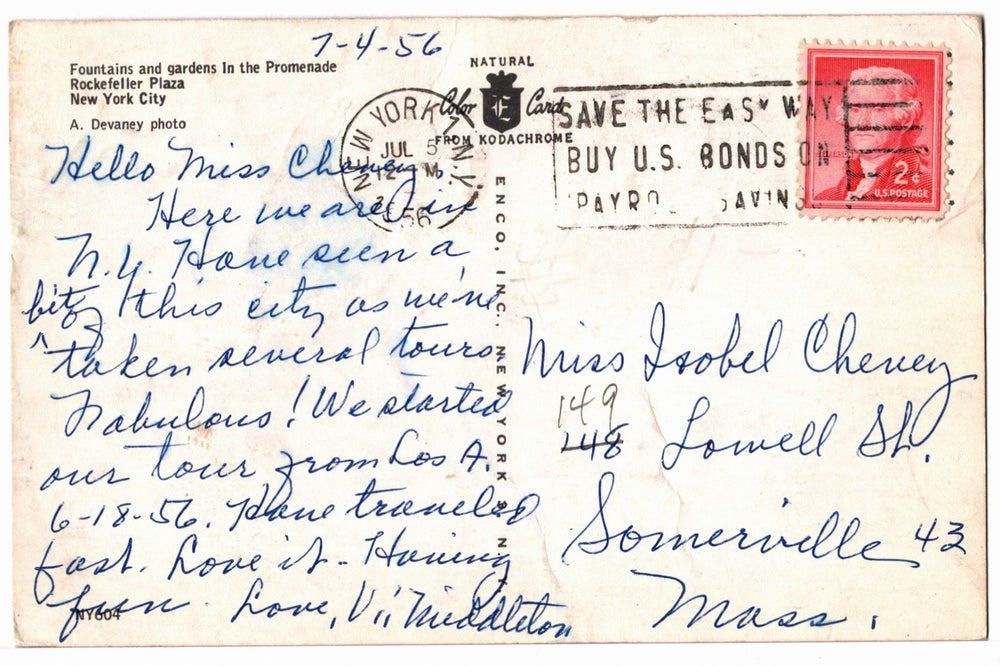 7-4-56
Fountains and gardens In the Promenade
Rockefeller Plaza
New York City
A. Devaney photo
NATURAL
Color E Card
FROM KODACHROME
NEW YORK, N.Y.
JUL 5
12 M
1956
SAVE THE EASY WAY
BUY U.S. BONDS ON
PAYRO SAVINGS
2¢
U.S. POSTAGE
Hello Miss Cheney,
Here we are in
N.Y. Have seen a
bit of this city as we've
^
taken several tours
Fabulous! We started
our tour from Los A.
6-18-56. Have traveled
fast. Love it - Having
fun. Love, Vi Middleton
NY604
ENCO, INC., NEW YORK N
Miss Isobel Cheney
149
148 Lowell St.
Somerville 43
Mass.